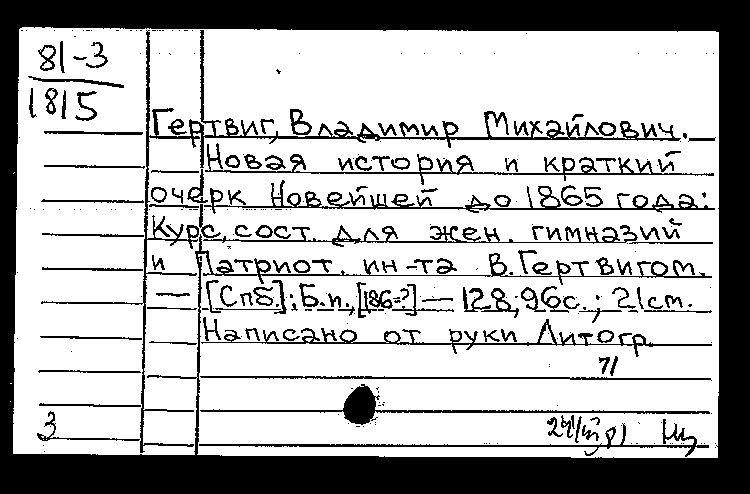 81-3
1815
Гертвиг, Владимир Михайлович.
Новая история и краткий
очерк Новейшей до 1865 года:
Курс, сост. для жен. гимназий
и Патриот. ин-та В. Гертвигом.
— [Спб.]: Б.и., [186-?] — 128, 96с.; 21см.
Написано от руки. Литогр.
71
3